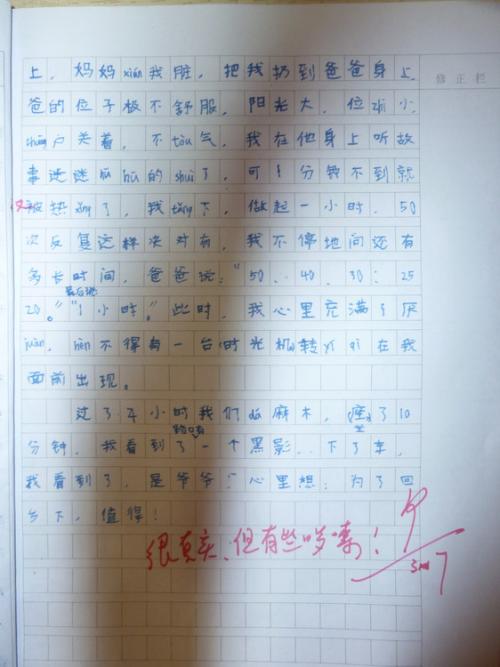 上，妈妈xián我脏，把我扔到爸爸身上，
修正栏
爸的位子极不舒服，阳光大，位zhi小，
chuāng户关着，不tòu气，我在他身上听故
事迷迷hú hū的shuì了，可1分钟不到就
又被热xǐng了，我tǎng下，做起一小时，50
次反复这样决对有，我不停地问还有
多长时间，爸爸说："50..40..30：25
最后说
20。""1小时。"此时，我心里充满了厌
juàn，hèn不得有一台时光机转yí qì在我
面前出现。
过了4小时我们dà麻木，座了10
坐
分钟，我看到了一个黑影..下了车，
我看到了，是爷爷！心里想：为了回
乡下，值得！
很真实，但有些啰嗦！